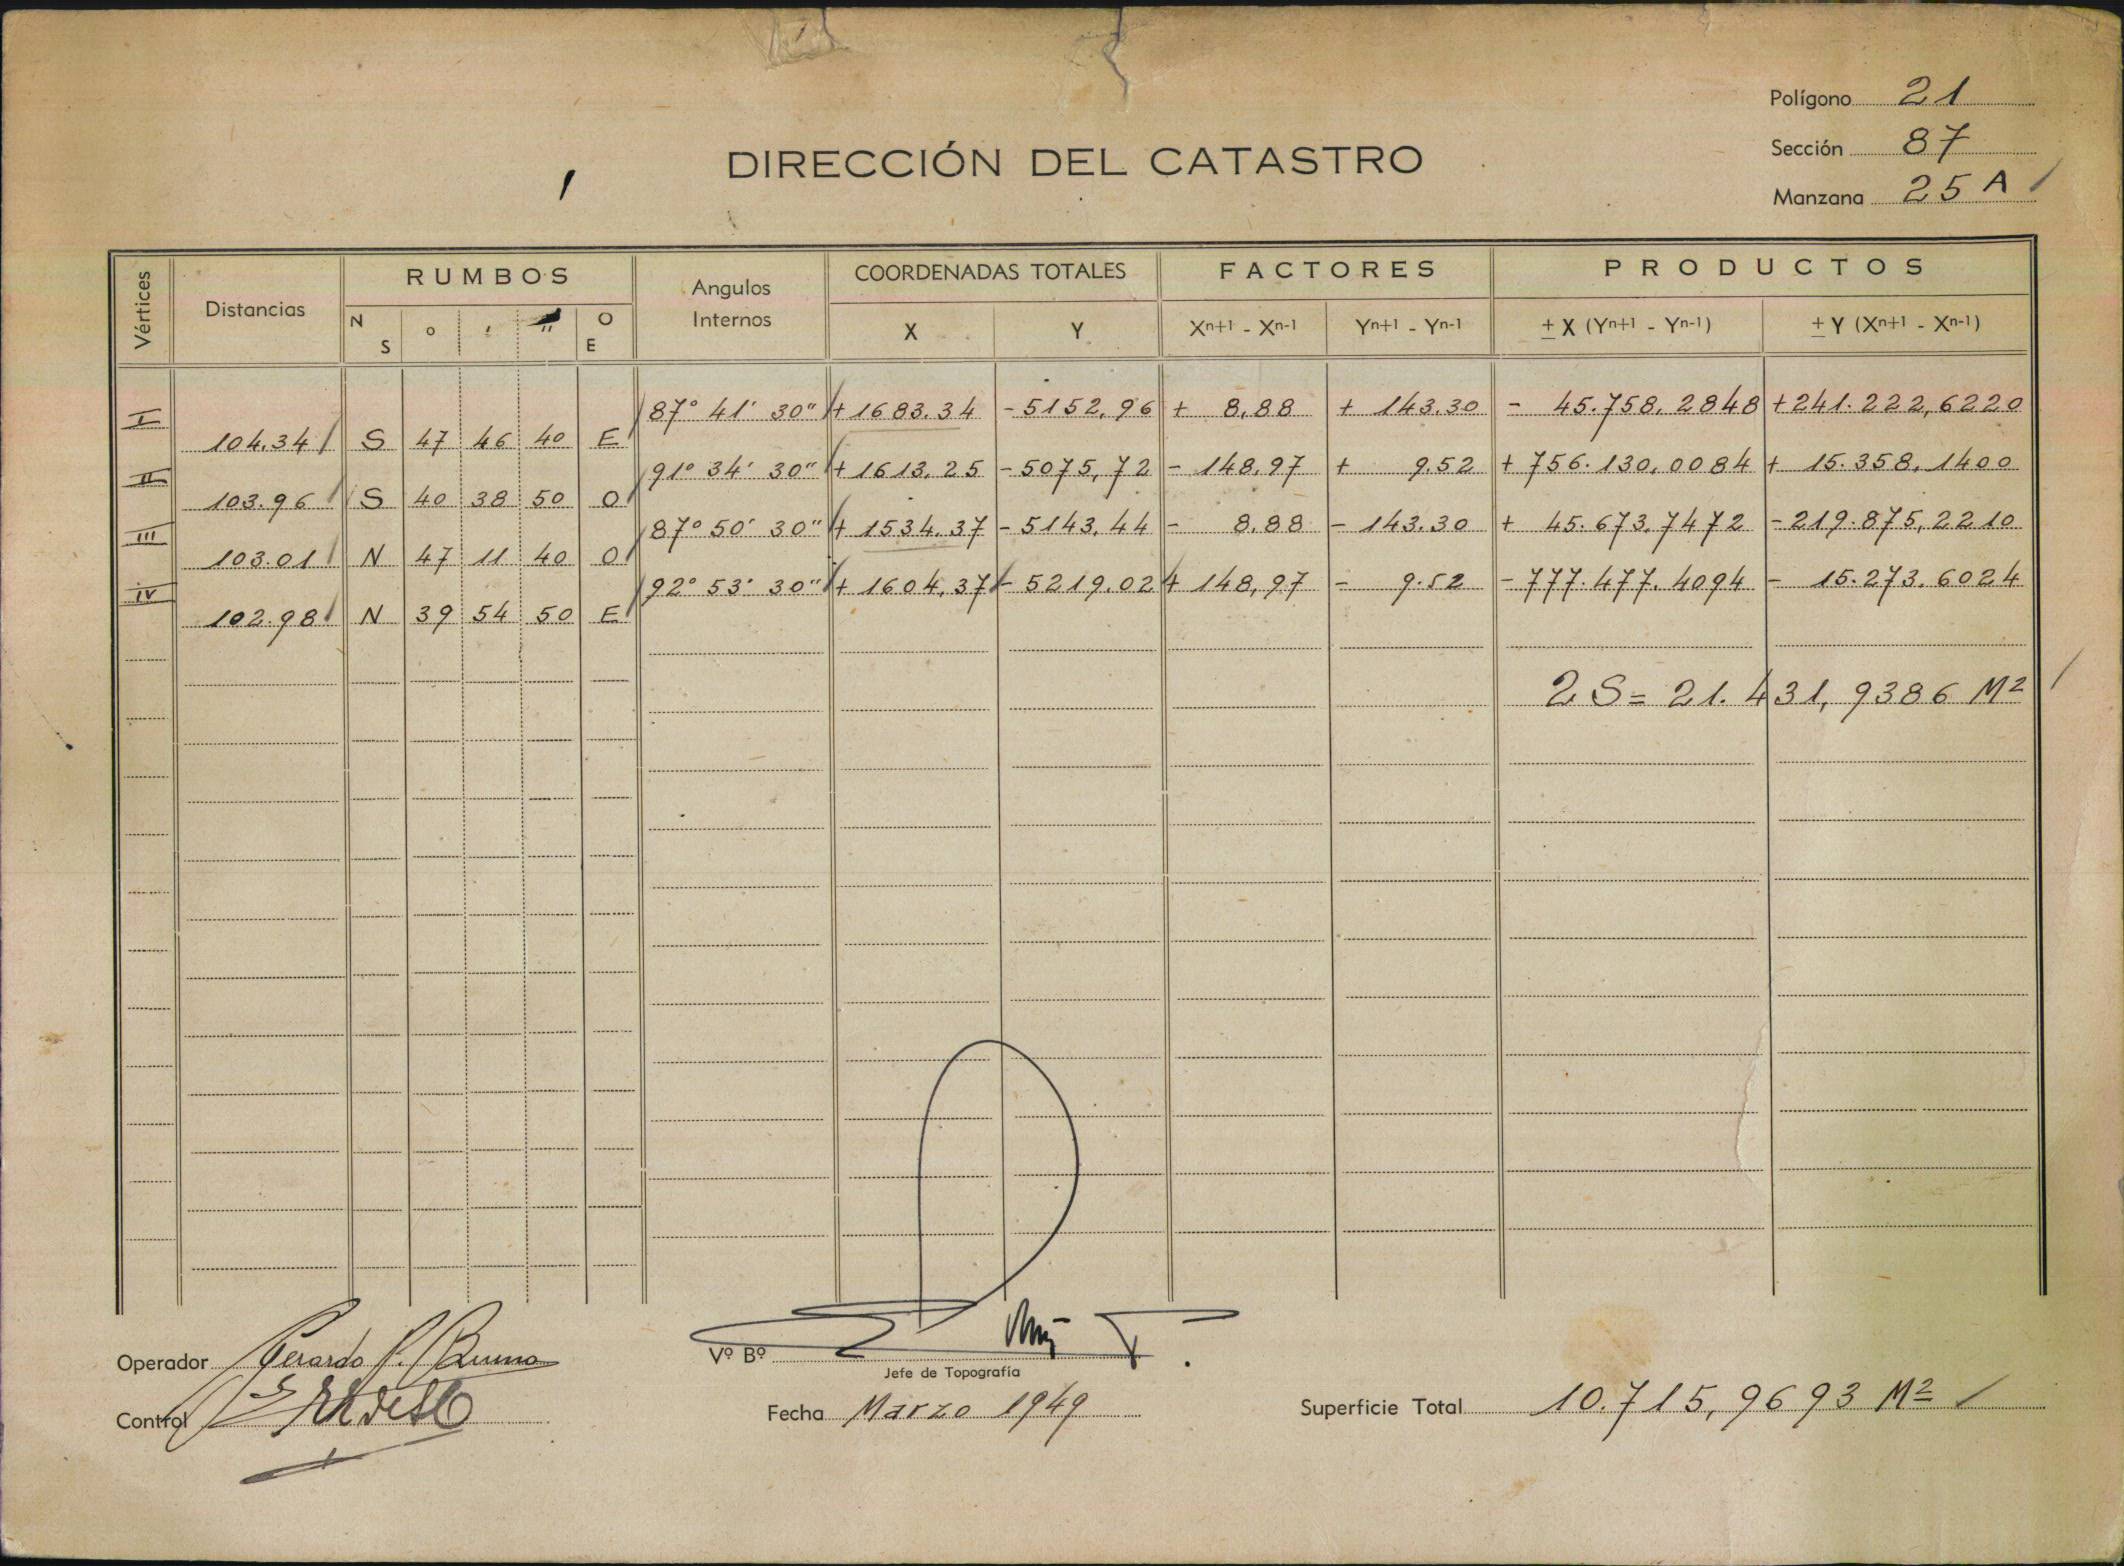 Polígono 21
DIRECCIÓN DEL CATASTRO
Sección 87
Manzana 25 A
Vértices Distancias RUMBOS Angulos Internos COORDENADAS TOTALES FACTORES PRODUCTOS
N S ° ' " O E X Y Xn+1 - Xn-1 Yn+1 - Yn-1 ± X (Yn+1 - Yn-1) ± Y (Xn+1 - Xn-1)
I 87° 41' 30" + 1683.34 - 5152,96 + 8,88 + 143.30 - 45.758,2848 + 241.222,6220
104.34 S 47 46 40 E
II 91° 34' 30" + 1613,25 - 5075,72 - 148,97 + 9.52 + 756.130,0084 + 15.358,1400
103.96 S 40 38 50 O
III 87° 50' 30" + 1534.37 - 5143,44 - 8.88 - 143.30 + 45.673,7472 - 219.875,2210
103.01 N 47 11 40 O
IV 92° 53' 30" + 1604,37 - 5219.02 + 148,97 - 9.52 - 777.477.4094 - 15.273.6024
102.98 N 39 54 50 E
2 S = 21.431,9386 M2
Operador Gerardo P. Bruno
Vº Bº
Jefe de Topografía
Control
Fecha Marzo 1949
Superficie Total 10.715,9693 M2